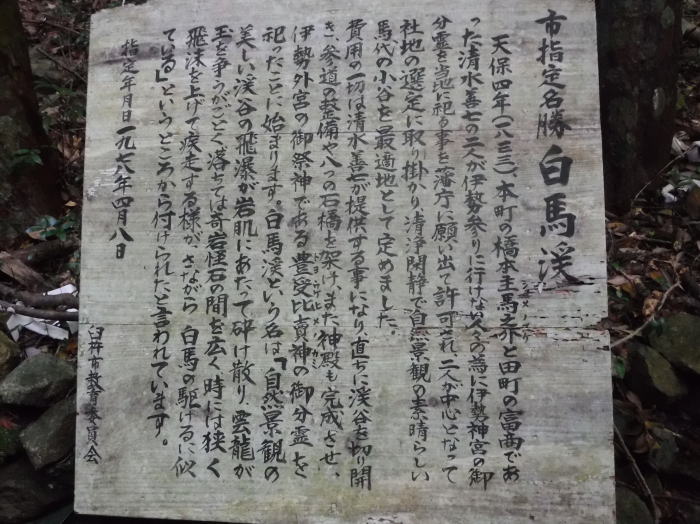 市指定名勝 白馬渓
天保四年(一八三三)、本町の橋本主馬之介と田町の富商であ
シュメノスケ
った清水善七の二人が伊勢参りに行けない人々の為に伊勢神宮の御
分霊を当地に祀る事を藩庁に願い出て許可され二人が中心となって
社地の選定に取り掛かり清浄閑静で自然景観の素晴らしい
馬代の小谷を最適地として定めました。
費用の一切は清水善七が提供する事になり直ちに渓谷を切り開
き、参道の整備や八つの石橋を架け、また神殿も完成させ、
伊勢外宮の御祭神である豊受比賣神の御分霊を
トヨウケヒメノカミ
祀ったことに始まります。白馬渓という名は、「自然景観の
美しい渓谷の飛瀑が岩肌にあたって砕け散り、雲龍が
玉を争うがごとく落ちては奇岩怪石の間を広く、時には狭く
飛沫を上げて疾走する様が、さながら 白馬の駆けるに似
ている」というところから付けられたと言われています。
指定年月日 一九七八年四月八日
臼杵市教育委員会